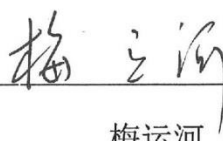 梅运河
梅运河